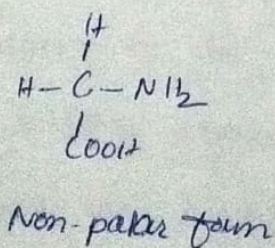 H
H - C - NH2
COOH
Non-polar form